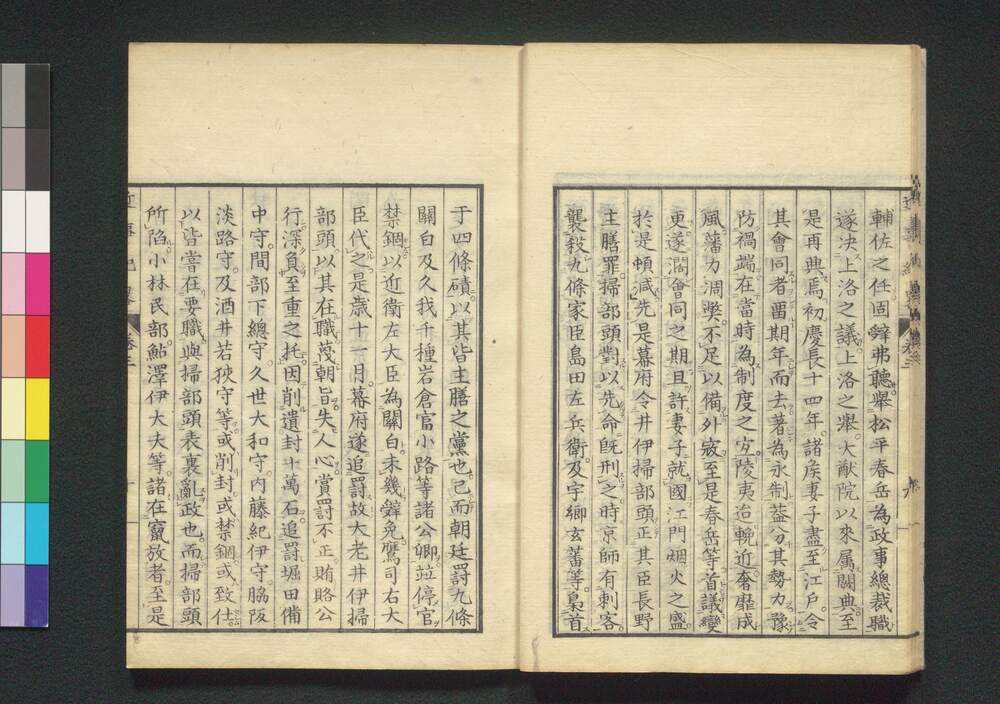 輔佐之任固辤弗聽擧松平春岳為政事總裁職
遂决上洛之議上洛之擧大猷院以來属闕典至
是再興焉初慶長十四年諸矦妻子盡至江戸令
其會同者畱期年而去著為永制葢分其勢力豫
防禍端在當時為制度之宜陵夷迨輓近奢靡成
風藩力凋獘不足以備外寇至是春岳等首議變
更遂濶會同之期且許妻子就國江門烟火之盛
於是頓减先是幕府令井伊掃部頭正其臣長野
主膳罪掃部頭對以先命既刑之時京師有刺客
襲殺九條家臣島田左兵衛及宇郷玄蕃等梟首
于四條磧以其皆主膳之黨也已而朝廷罰九條
關白及久我千種岩倉富小路等諸公卿並停官
禁錮以近衛左大臣為關白未幾辤免鷹司右大
臣代之是歳十一月幕府遂追罰故大老井伊掃
部頭以其在職蔑朝旨失人心賞罰不正賄賂公
行深負至重之托因削遺封十萬石追罰堀田備
中守間部下總守久世大和守内藤紀伊守脇阪
淡路守及酒井若狹守等或削封或禁錮或致仕
以皆嘗在要職與掃部頭表裏亂政也而掃部頭
所陷小林民部鮎澤伊大夫等諸在竄放者至是